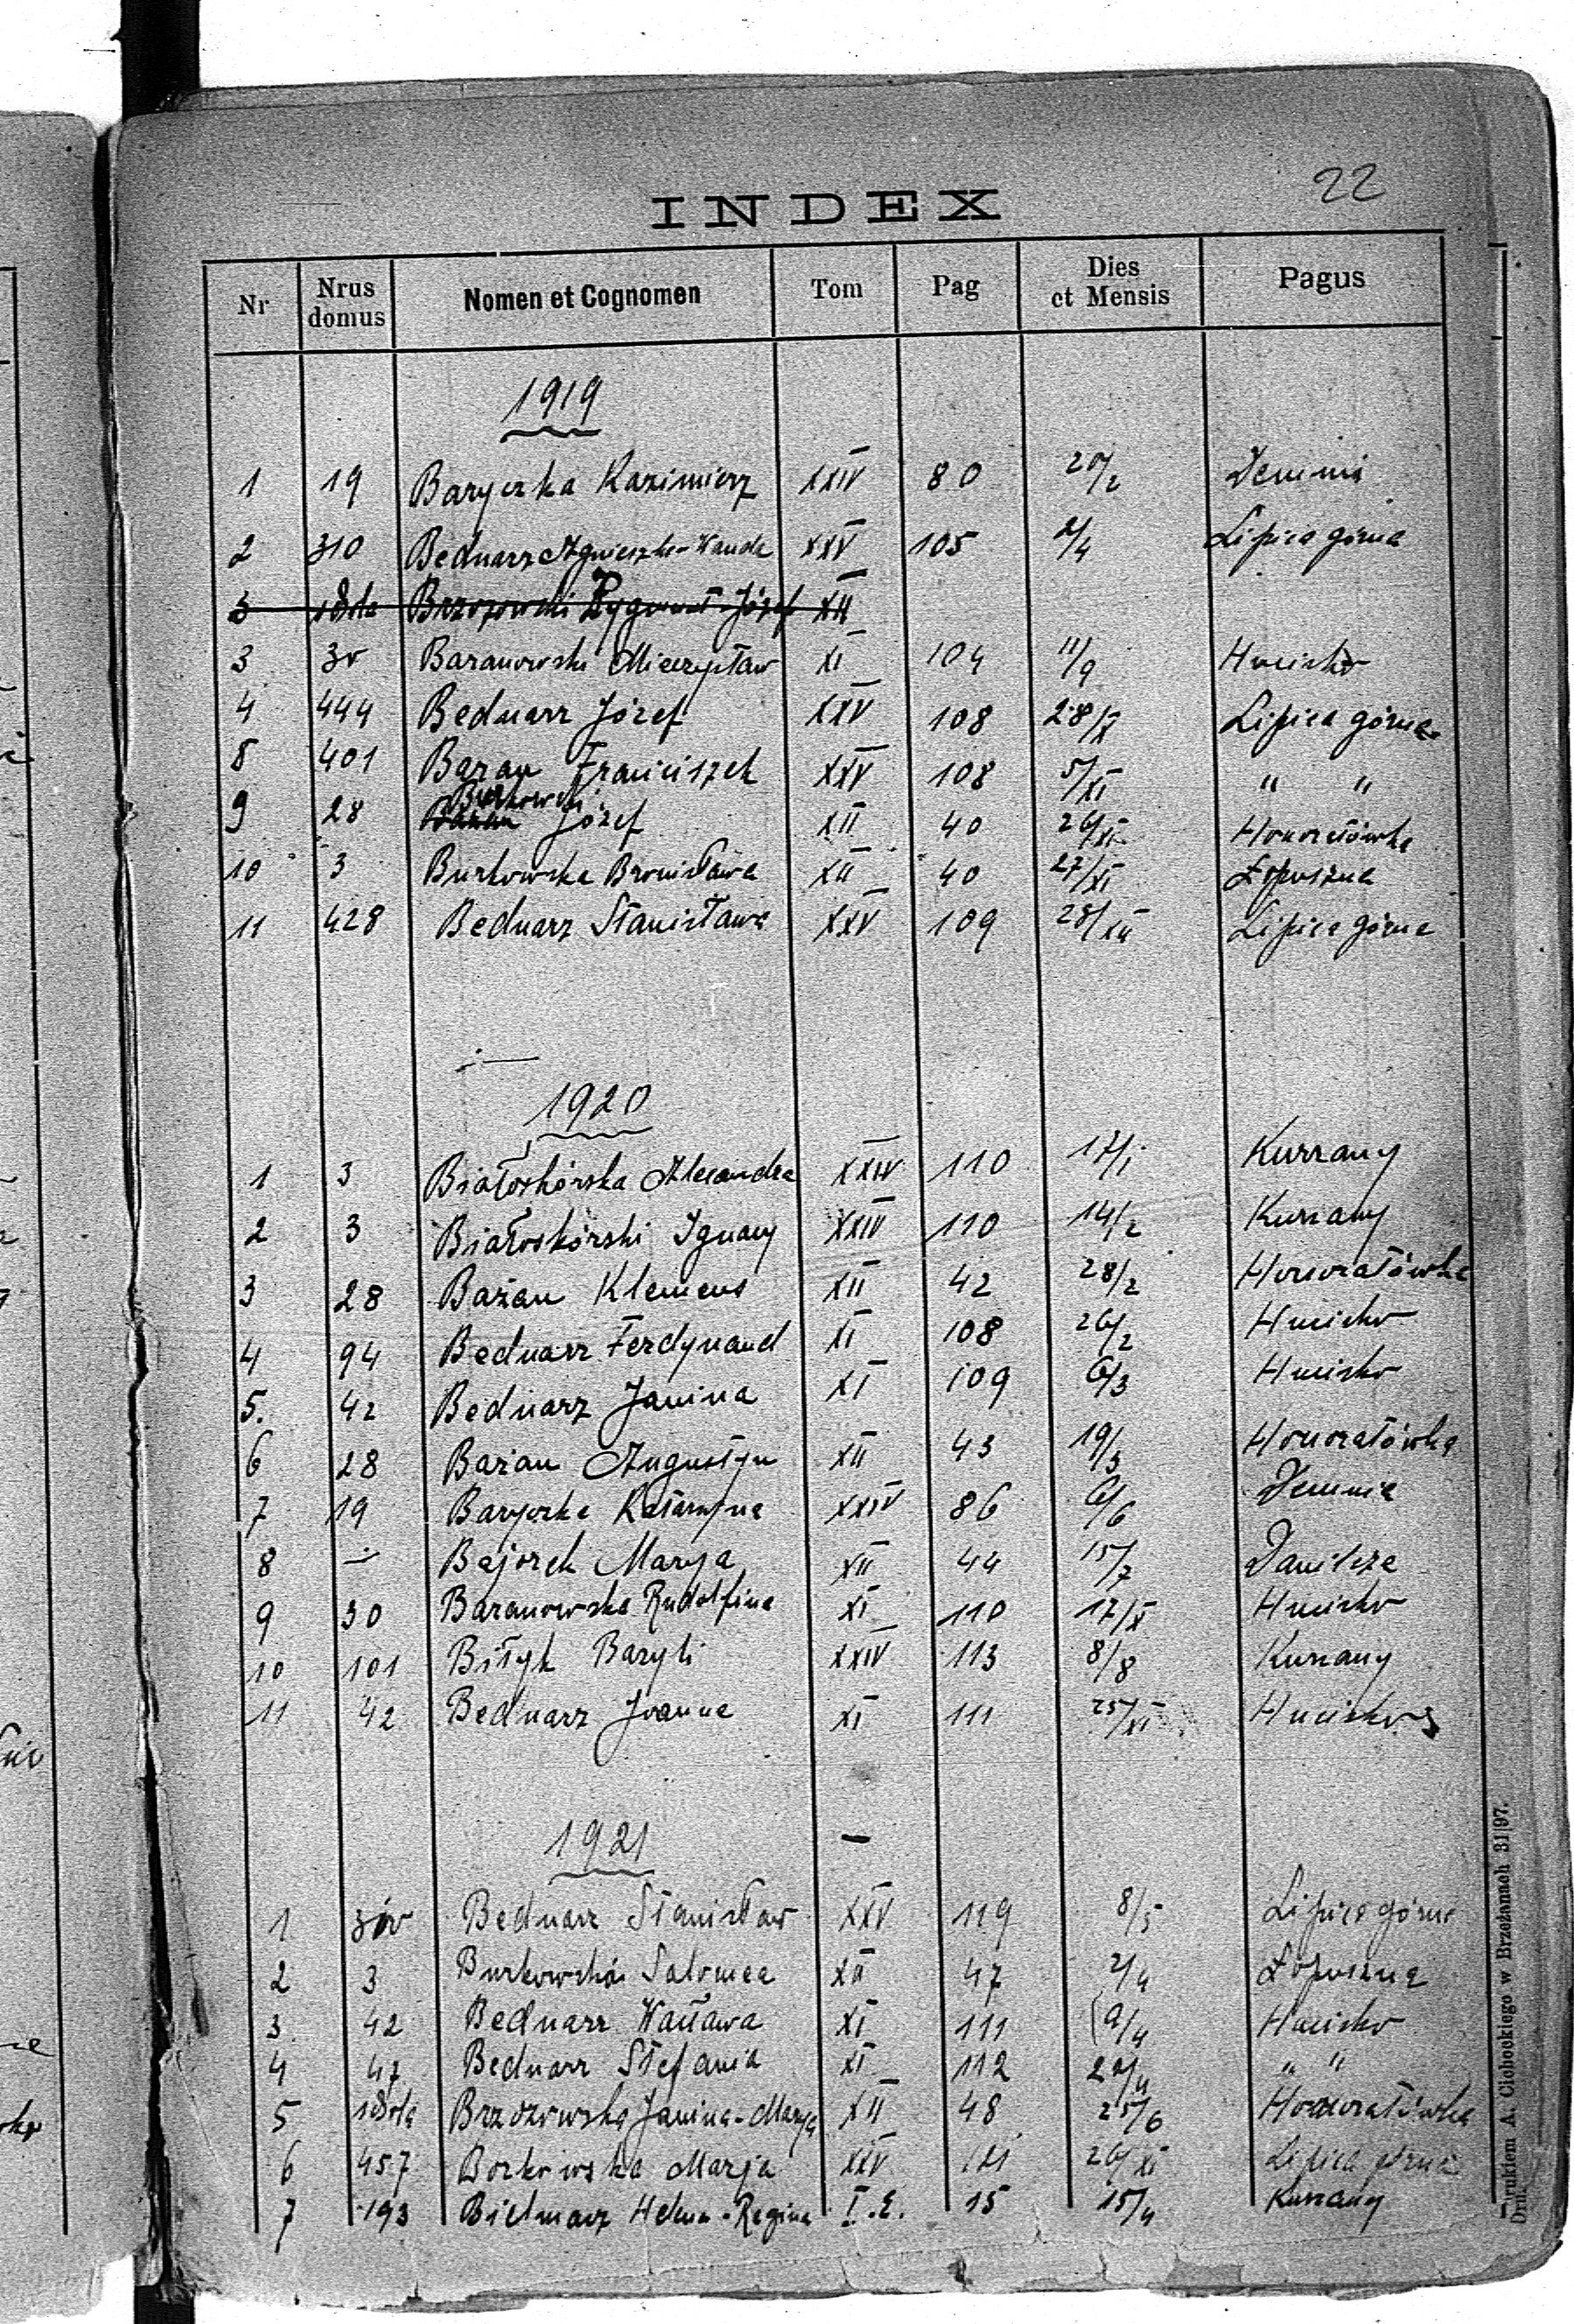 22
INDEX
Nr Nrus domus Nomen et Cognomen Tom Pag Dies et Mensis Pagus
1919
1 19 Baryczka Kazimierz XXIV 80 20/2 Demnia
2 310 Bednarz Agnieszka-Wanda XXV 105 2/4 Lipica górna
3 Brzozowski Zygmunt-Józef XII
3 30 Baranowski Mieczysław XI 104 11/9 Hucisko
4 444 Bednarz Józef XXV 108 28/X Lipica górna
8 401 Bazan Franciszek XXV 108 5/XI " "
9 28 Burkowski Józef XII 40 26/XI Honoratówka
10 3 Burkowska Bronisława XII 40 27/XI Łopuszna
11 428 Bednarz Stanisława XXV 109 28/XII Lipica górna
1920
1 3 Białoskórska Alexandra XXIV 110 17/I Kurzany
2 3 Białoskórski Ignacy XXIV 110 14/2 Kurzany
3 28 Bażan Klemens XII 42 28/2 Honoratówka
4 94 Bednarz Ferdynand XI 108 26/2 Hucisko
5. 42 Bednarz Janina XI 109 6/3 Hucisko
6 28 Bażan Augustyn XII 43 19/3 Honoratówka
7 19 Baryczka Katarzyna XXIV 86 6/6 Demnia
8 — Bajorek Marya XII 44 15/7 Danilcze
9 30 Baranowska Rudolfina XI 110 17/X Hucisko
10 101 Biłyk Bazyli XXIV 113 8/8 Kurzany
11 42 Bednarz Joanna XI 111 25/XI Hucisko
1921 —
1 Bednarz Stanisław XXV 119 8/5 Lipica górna
2 3 Burkowska Salomea XII 47 2/4 Łopuszna
3 42 Bednarz Wacława XI 111 9/4 Hucisko
4 47 Bednarz Stefania XI 112 20/4 " "
5 Brzozowska Janina-Marya XII 48 25/6 Honoratówka
6 457 Borkowska Marja XXV 121 26/XI Lipica górna
7 193 Bielmarz Helena-Regina I.E. 15 15/4 Kurzany
Drukiem A. Cichockiego w Brzeżanach 31|97.